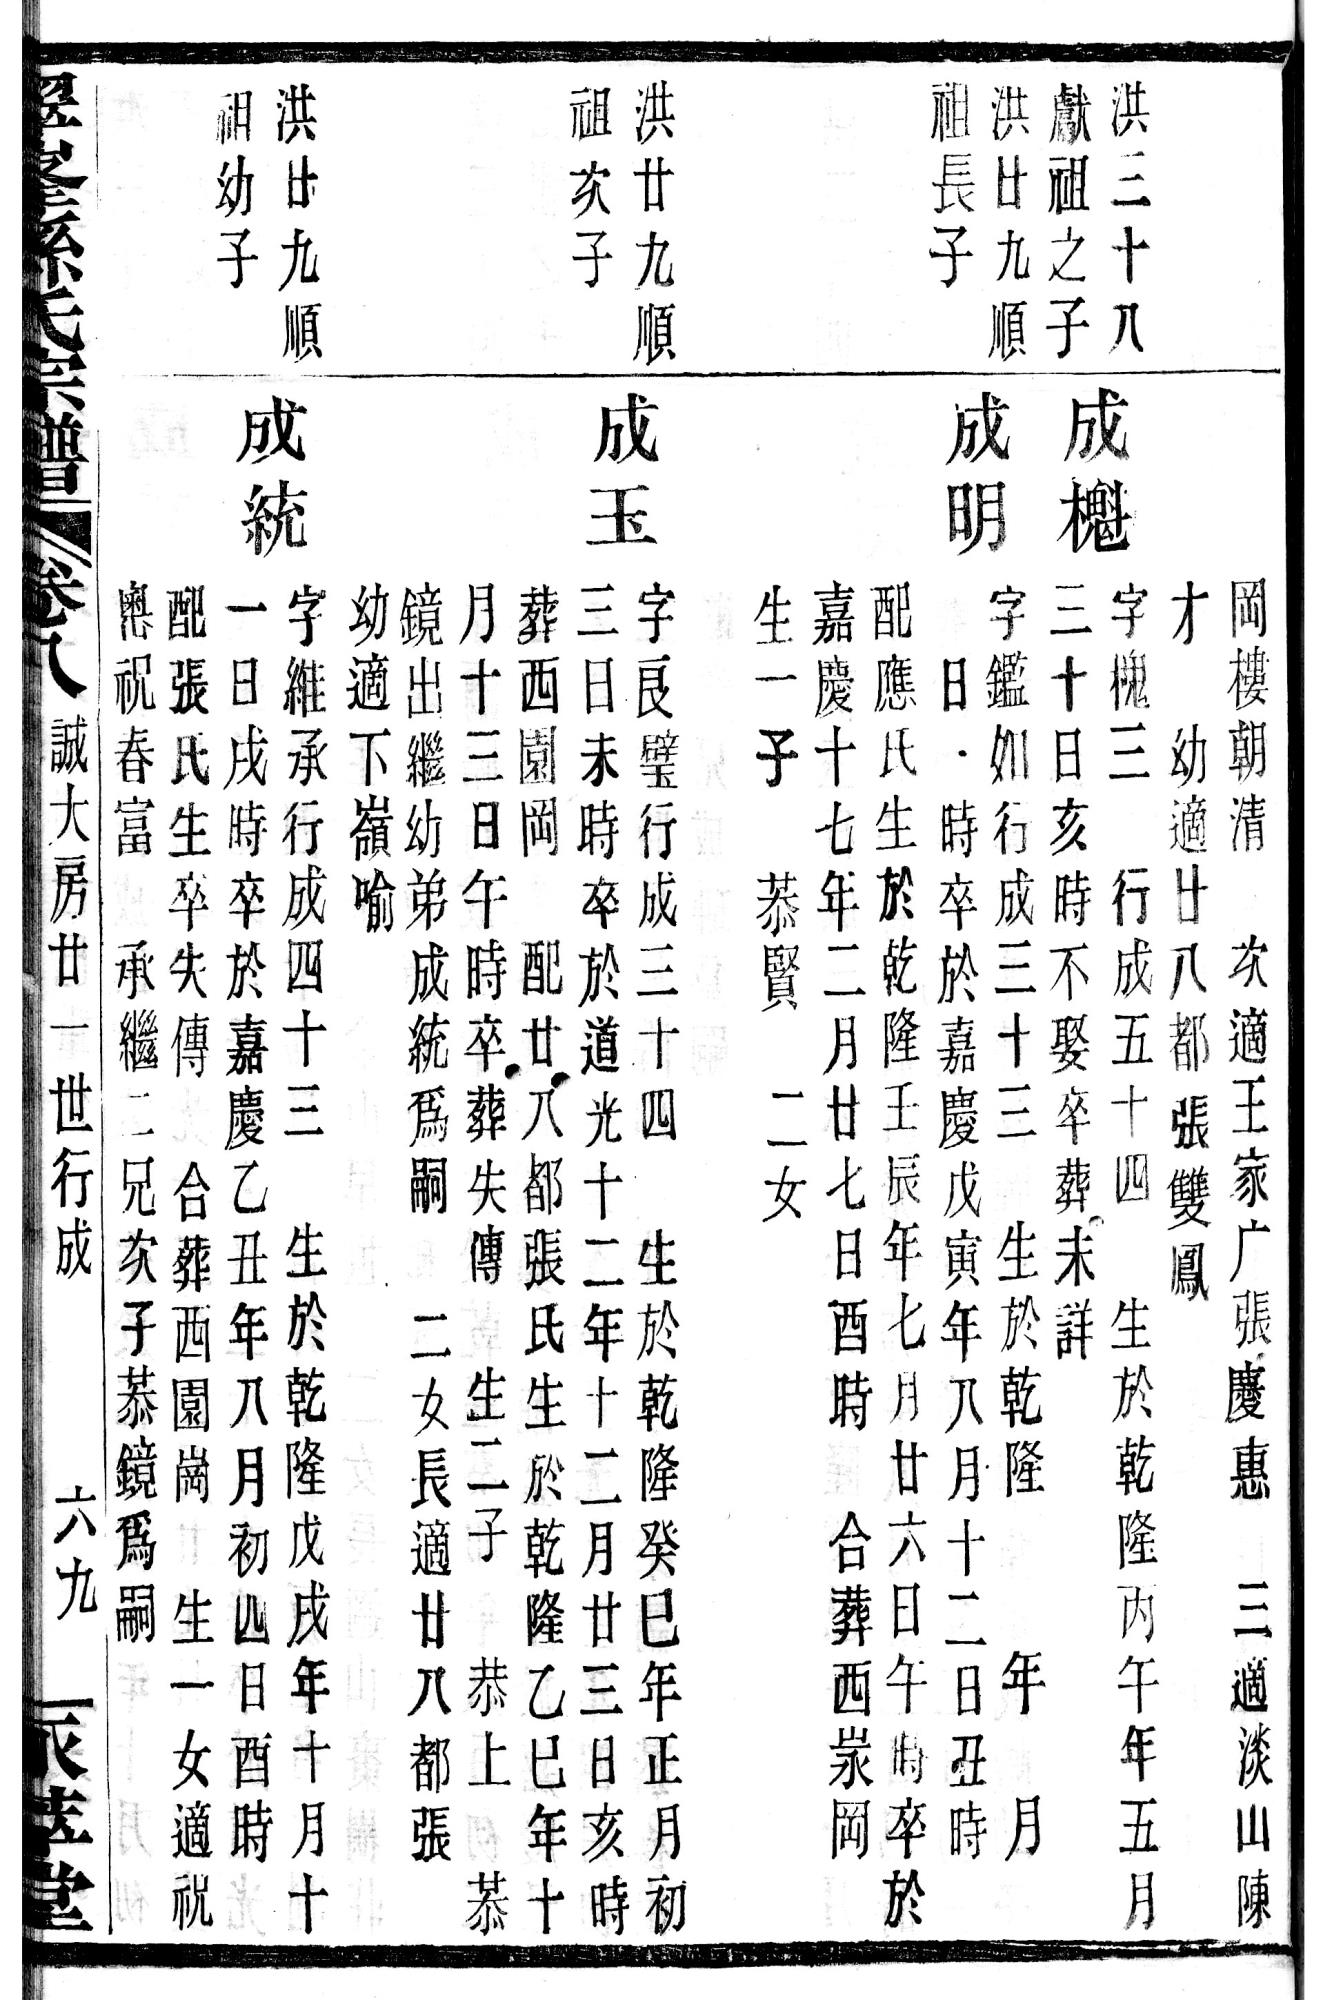 岡樓朝清　次適王家广張慶惠　三適淡山陳
才　幼適廿八都張雙鳳
洪三十八
獻祖之子
成槐
字槐三　行成五十四　生於乾隆丙午年五月
三十日亥時不娶卒葬未詳
洪廿九順
祖長子
成明
字鑑如行成三十三　生於乾隆　年　月
日　時卒於嘉慶戊寅年八月十二日丑時
配應氏生於乾隆壬辰年七月廿六日午時卒於
嘉慶十七年二月廿七日酉時　合葬西岽岡
生一子　恭賢　二女
洪廿九順
祖次子
成玉
字良璧行成三十四　生於乾隆癸巳年正月初
三日未時卒於道光十二年十二月廿三日亥時
葬西園岡　配廿八都張氏生於乾隆乙巳年十
月十三日午時卒葬失傳　生二子　恭上　恭
鏡出繼幼弟成統爲嗣　二女長適廿八都張
幼適下嶺喻
洪廿九順
祖幼子
成統
字維承行成四十三　生於乾隆戊戌年十月十
一日戌時卒於嘉慶乙丑年八月初四日酉時
配張氏生卒失傳　合葬西園崗　生一女適祝
塢祝春富　承繼二兄次子恭鏡爲嗣
翠峯孫氏宗譜　卷八　誠大房廿一世行成　六九　萃堂